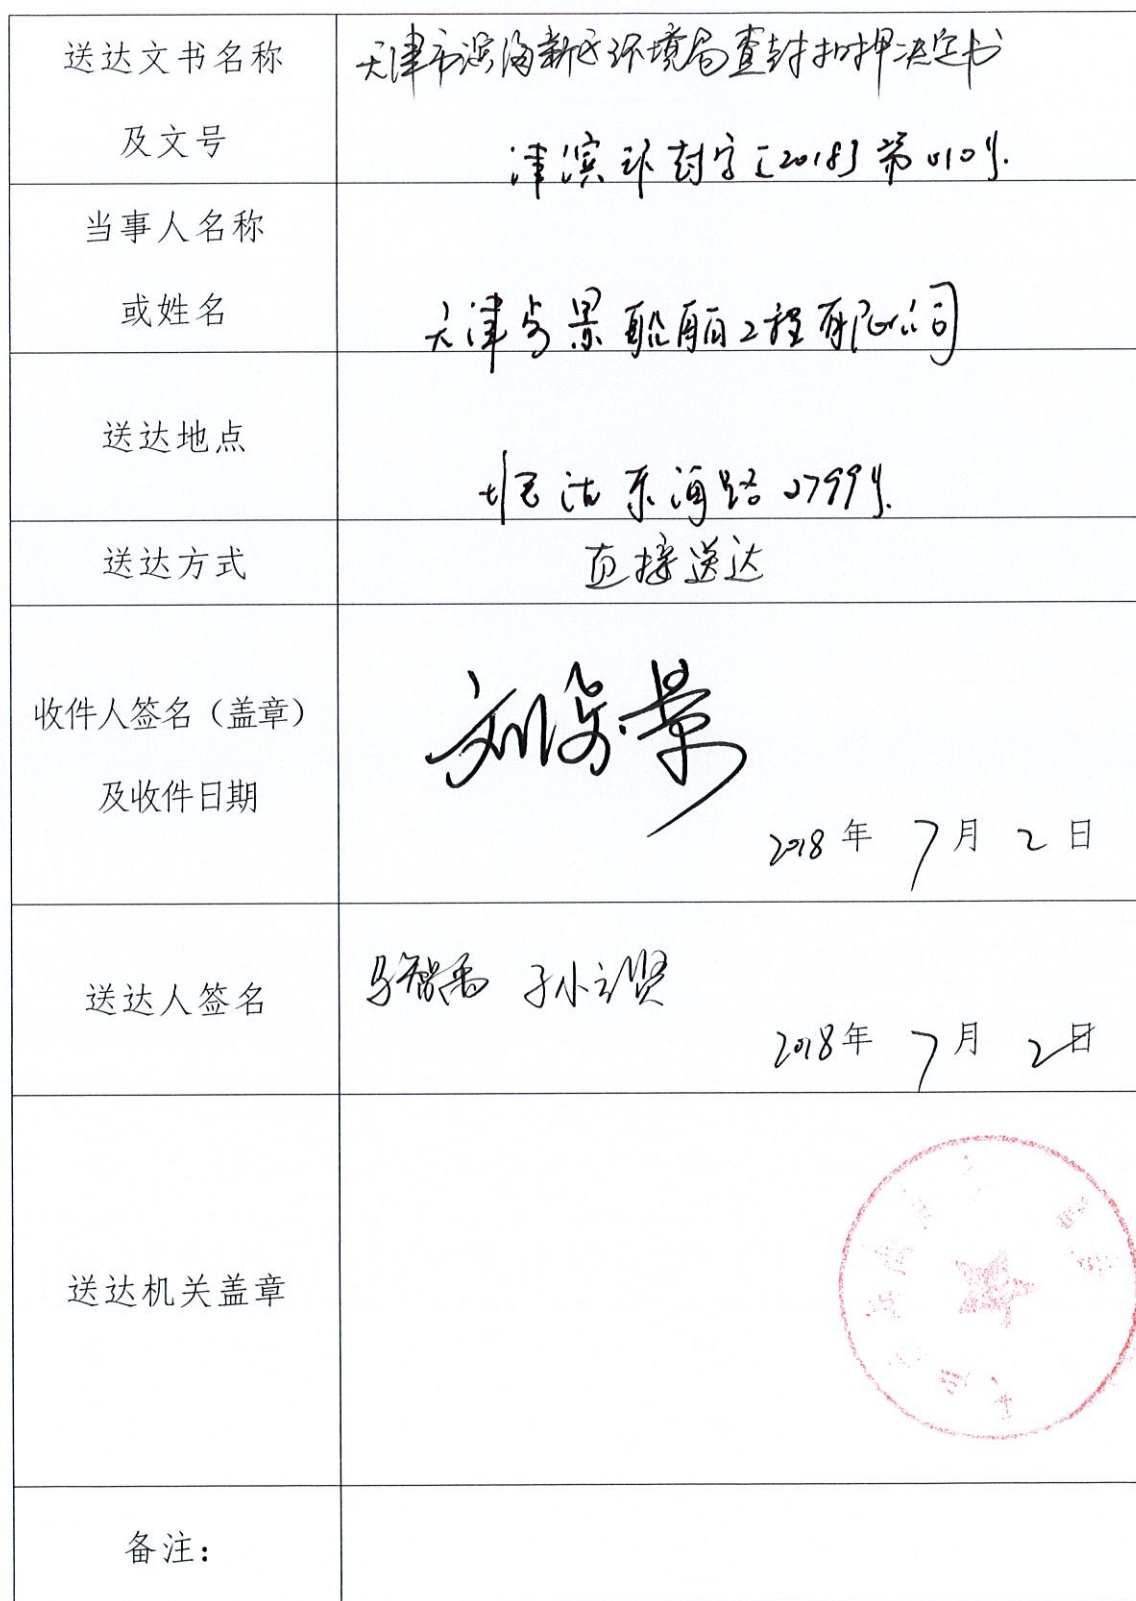 送达文书名称
及文号
天津市滨海新区环境局查封扣押决定书
津滨环封字[2018]第010号
当事人名称
或姓名
天津 景船舶工程有限公司
送达地点
塘沽东海路2799号
送达方式
直接送达
收件人签名（盖章）
及收件日期
刘 景
2018年 7月 2日
送达人签名
马智禹
2018年 7月 2日
送达机关盖章
备注：